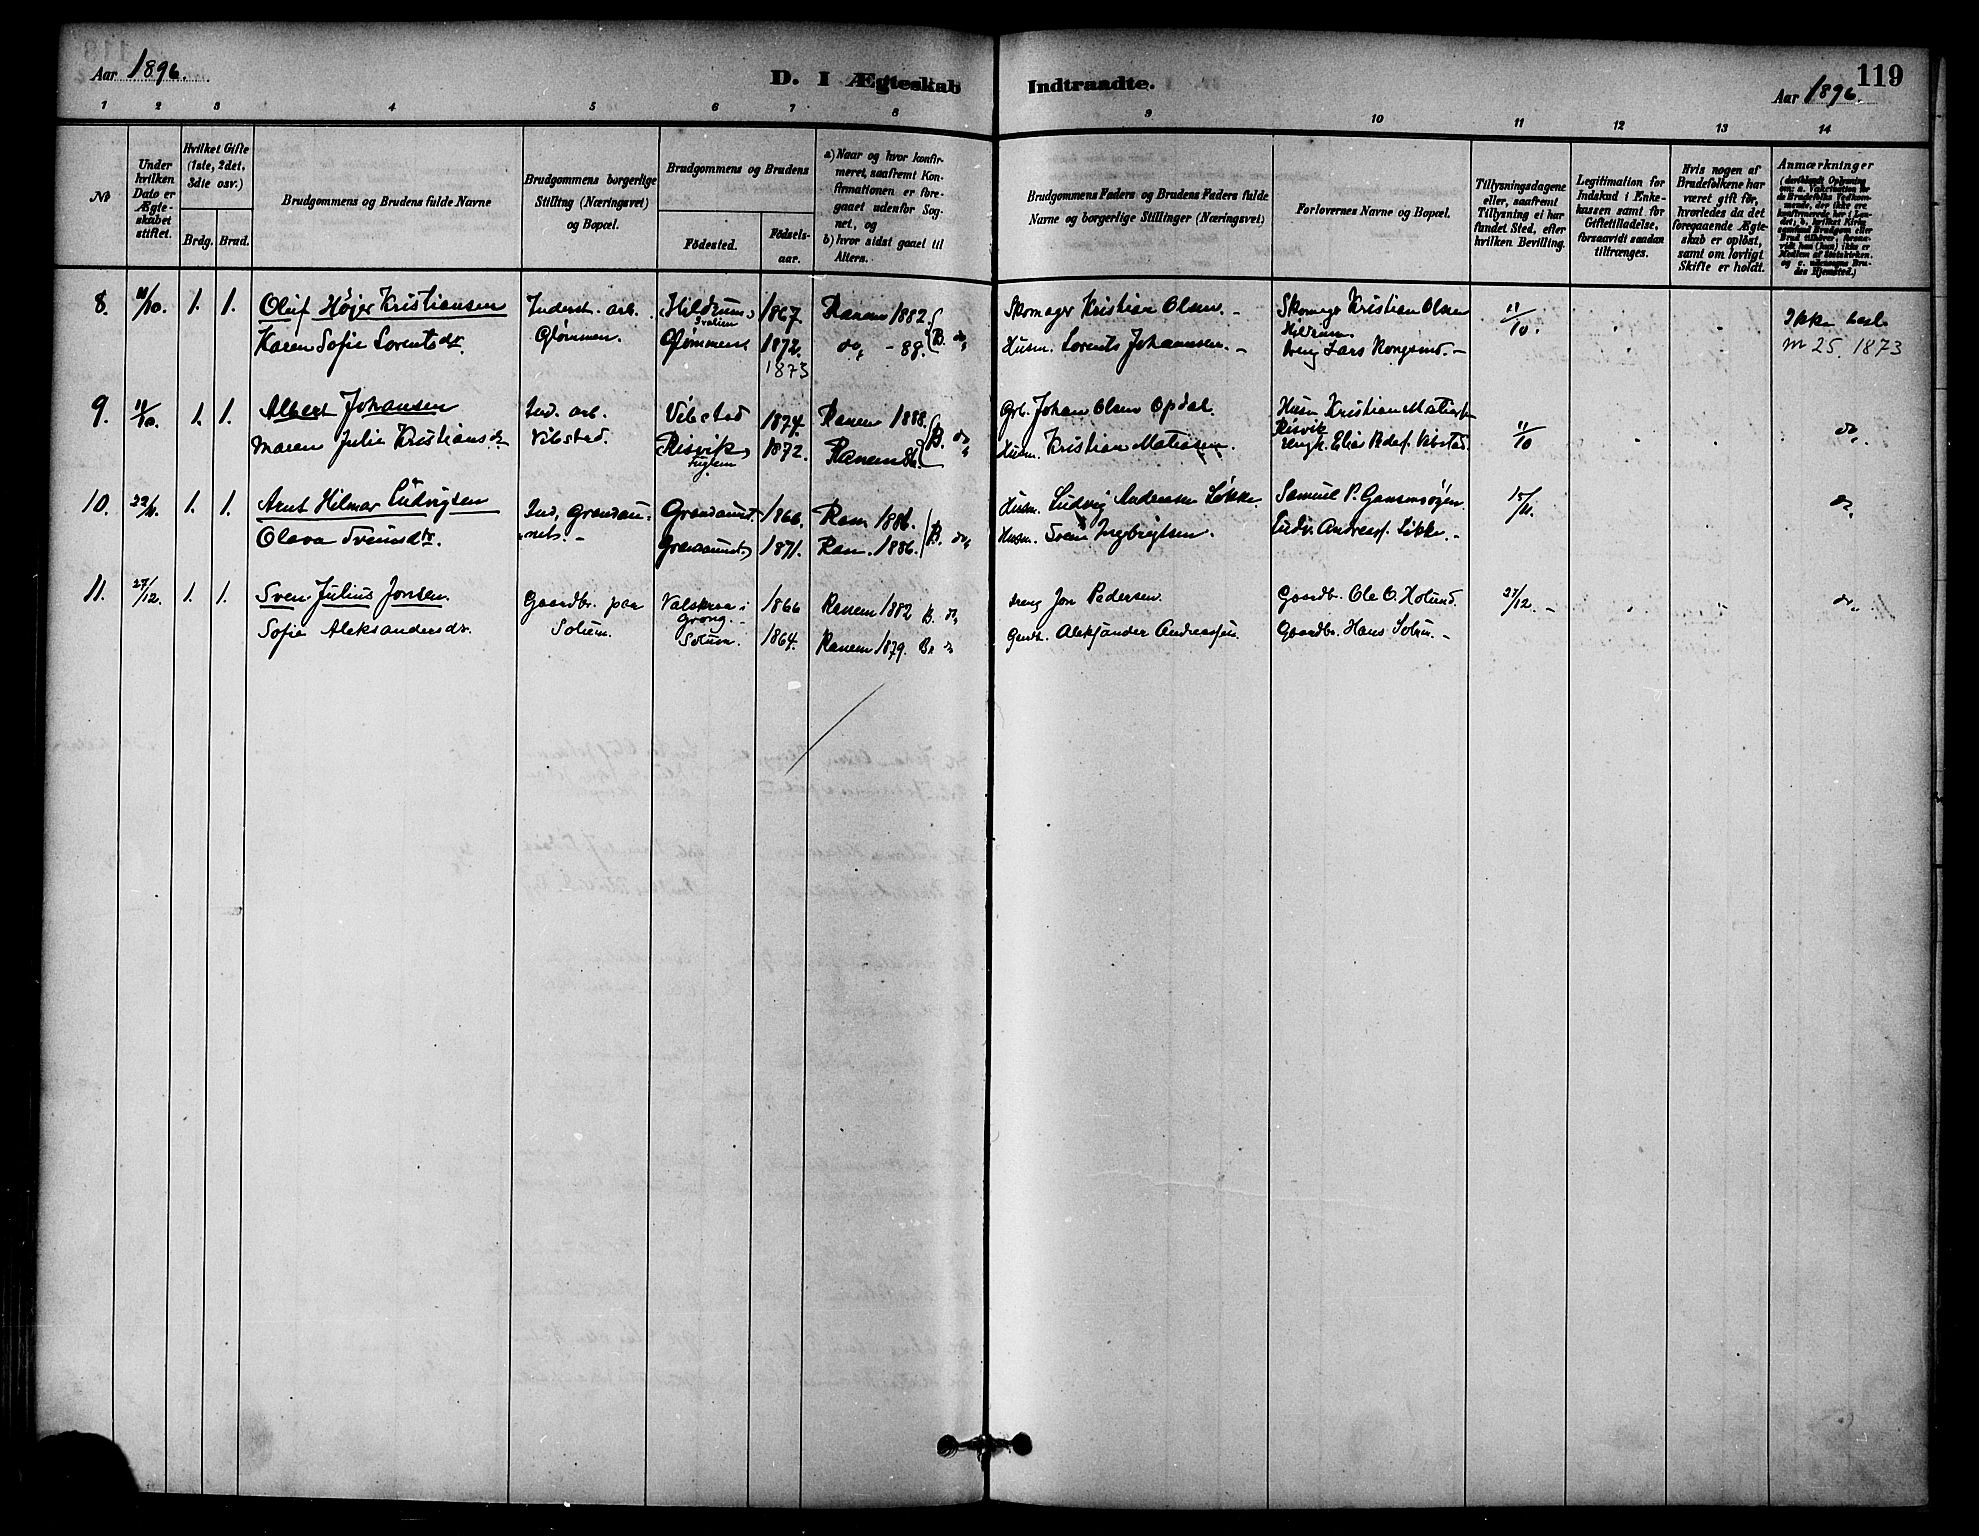 Aar 1896.
D. I Ægteskab Indtraadte.
119
Aar 1896
1 2 3 4 5 6 7 8 9 10 11 12 13 14
No
Under hvilken Dato er Ægteskabet stiftet.
Hvilket Gifte (1ste, 2det, 3die osv.)
Brdg. Brud.
Brudgommens og Brudens fulde Navne
Brudgommens borgerlige Stilling (Næringsvei) og Bopæl.
Brudgommens og Brudens
Fødested.
Fødselsaar.
a) Naar og hvor konfirmeret, saafremt Konfirmationen er foregaaet udenfor Sognet, og
b) hvor sidst gaaet til Alters.
Brudgommens Faders og Brudens Faders fulde Navne og borgerlige Stillinger (Næringsvei)
Forlovernes Navne og Bopæl.
Tillysningsdagene eller, saafremt Tillysning ei har fundet Sted, efter hvilken Bevilling.
Legitimation for Indskud i Enkekassen samt for Giftetilladelse, forsaavidt saadan tiltrænges.
Hvis nogen af Brudefolkene har været gift før, hvorledes da det foregaaende Ægteskab er opløst, samt om lovligt Skifte er holdt.
Anmærkninger
8. 11/10. 1. 1. Oluf Højer Kristiansen Inderst. arb. Hildrum 1867 Ranem 1882 Skomager Kristian Olsen. Skomager Kristian Olsen 11/10. Ikke besl.
Hildrum
Karen Sofie Lorentsdr. Glømmen. Glømmen 1872. do, - 88. B. do, Husm. Lorents Johannsen. - Lars Rongsmd. - m 25. 1873
1873
9. 11/10. 1. 1. Albert Johansen Ind. arb. Vibstad 1874. Ranem 1888. Grb. Johan Olsen Opdal. Husm Kristian Matiass
Risvik
Maren Julie Kristiansdr Vibstad. Risvik 1872. Ranem 86. B. do, Husm. Kristian Matiasen. Elias Vibstad. 11/10 do,
Fuglem
10. 22/11. 1. 1. Arnt Hilmar Ludvigsen Ind. Grandaunet. - Grandaunet. 1866. Ranm 1886. Husm. Ludvig Andersen Løkke. Samuel P. Gansmogen 15/11. do,
Olava Svensdtr. Grandaunet 1871. Ran. 1886. B. do, Husm. Sven Ingbrigtsen. Ludv. Andreas. Løkke. -
11. 27/12. 1. 1. Sven Julius Jonsen. Gaardbr. paa Valskraa i 1866 Ranem 1882 B. do, Jon Pedersen. Gaardbr. Ole O. 27/12. - do,
Grong. -
Sofie Aleksandersdr. Solum. Solum. 1864. Ranem 1879. B. do Gaardb. Aleksander Andreassen. Gaardbr. Hans Solum. -